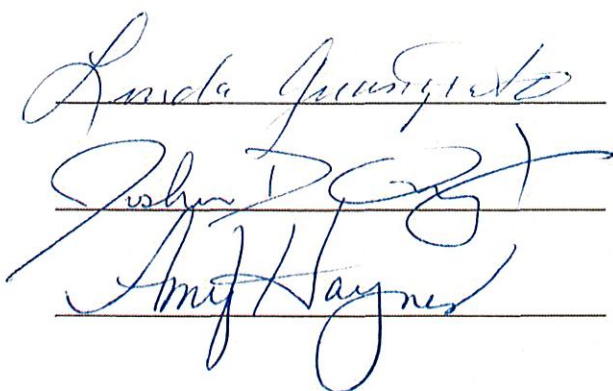 Linda
Joshua D
Amy Haynes